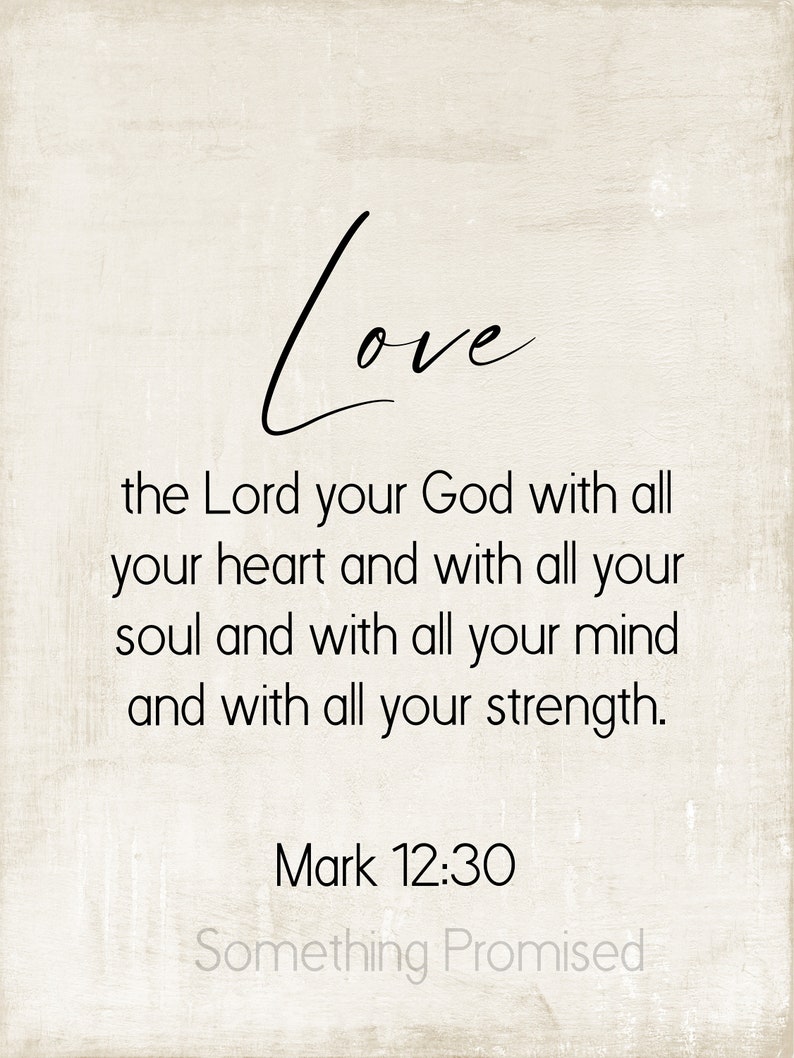 Love
the Lord your God with all
your heart and with all your
soul and with all your mind
and with all your strength.
Mark 12:30
Something Promised